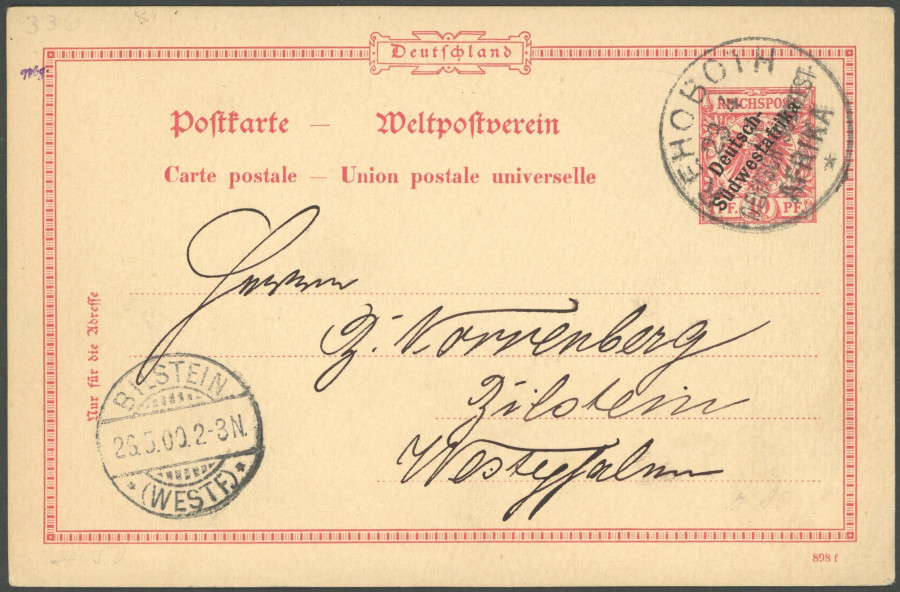 33
Deutschland
Postkarte — Weltpostverein
Carte postale — Union postale universelle
REHOBOTH
29
DEUTSCH-SÜDWEST-
AFRIKA
*
REICHSPOST
Deutsch-
Südwestafrika
PF. 10 PF.
Herrn
Z. Vorrenberg
Bilstein
Westfalen
Nur für die Adresse
BILSTEIN
26.5.00.2-3N.
* (WESTF) *
898 f